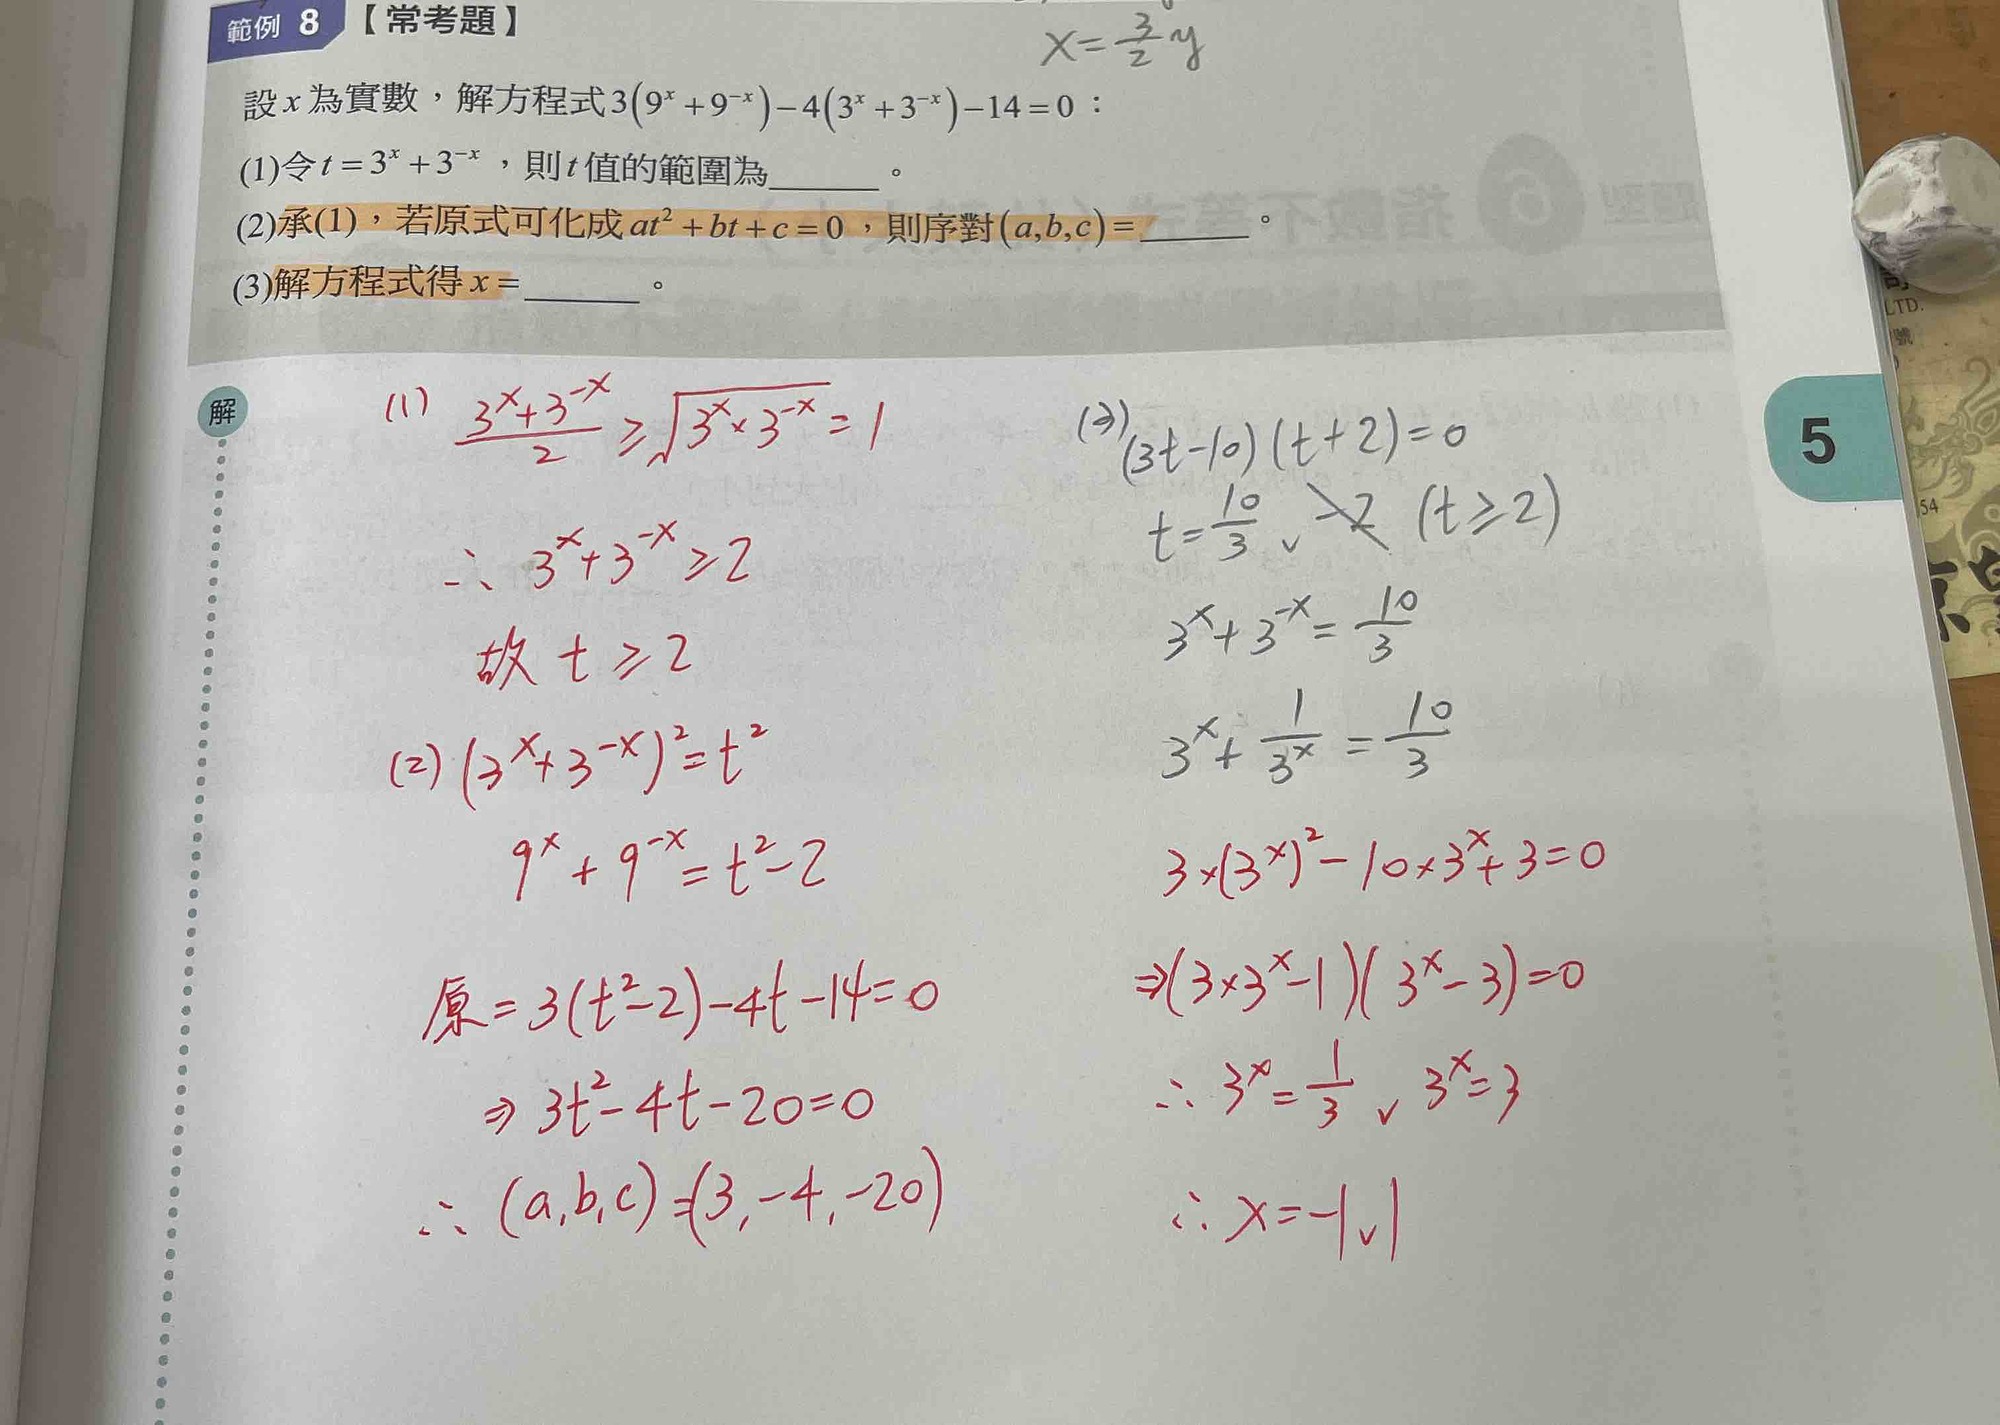 範例 8 【常考題】
x=3/2 y
設x為實數，解方程式3(9ˣ+9⁻ˣ)−4(3ˣ+3⁻ˣ)−14=0：
(1)令t=3ˣ+3⁻ˣ，則t值的範圍為______。
(2)承(1)，若原式可化成at²+bt+c=0，則序對(a,b,c)=______。
(3)解方程式得x=______。
解
(1) (3ˣ+3⁻ˣ)/2 ≥ √(3ˣ×3⁻ˣ) = 1
∴ 3ˣ+3⁻ˣ ≥ 2
故 t ≥ 2
(2) (3ˣ+3⁻ˣ)²=t²
9ˣ+9⁻ˣ=t²-2
原=3(t²-2)-4t-14=0
⇒ 3t²-4t-20=0
∴ (a,b,c)=(3,-4,-20)
(3) (3t-10)(t+2)=0
t=10/3 ∨ -2 (t≥2)
3ˣ+3⁻ˣ=10/3
3ˣ+1/3ˣ=10/3
3×(3ˣ)²-10×3ˣ+3=0
⇒(3×3ˣ-1)(3ˣ-3)=0
∴ 3ˣ=1/3 ∨ 3ˣ=3
∴ x=-1∨1
5
LTD.
號
54